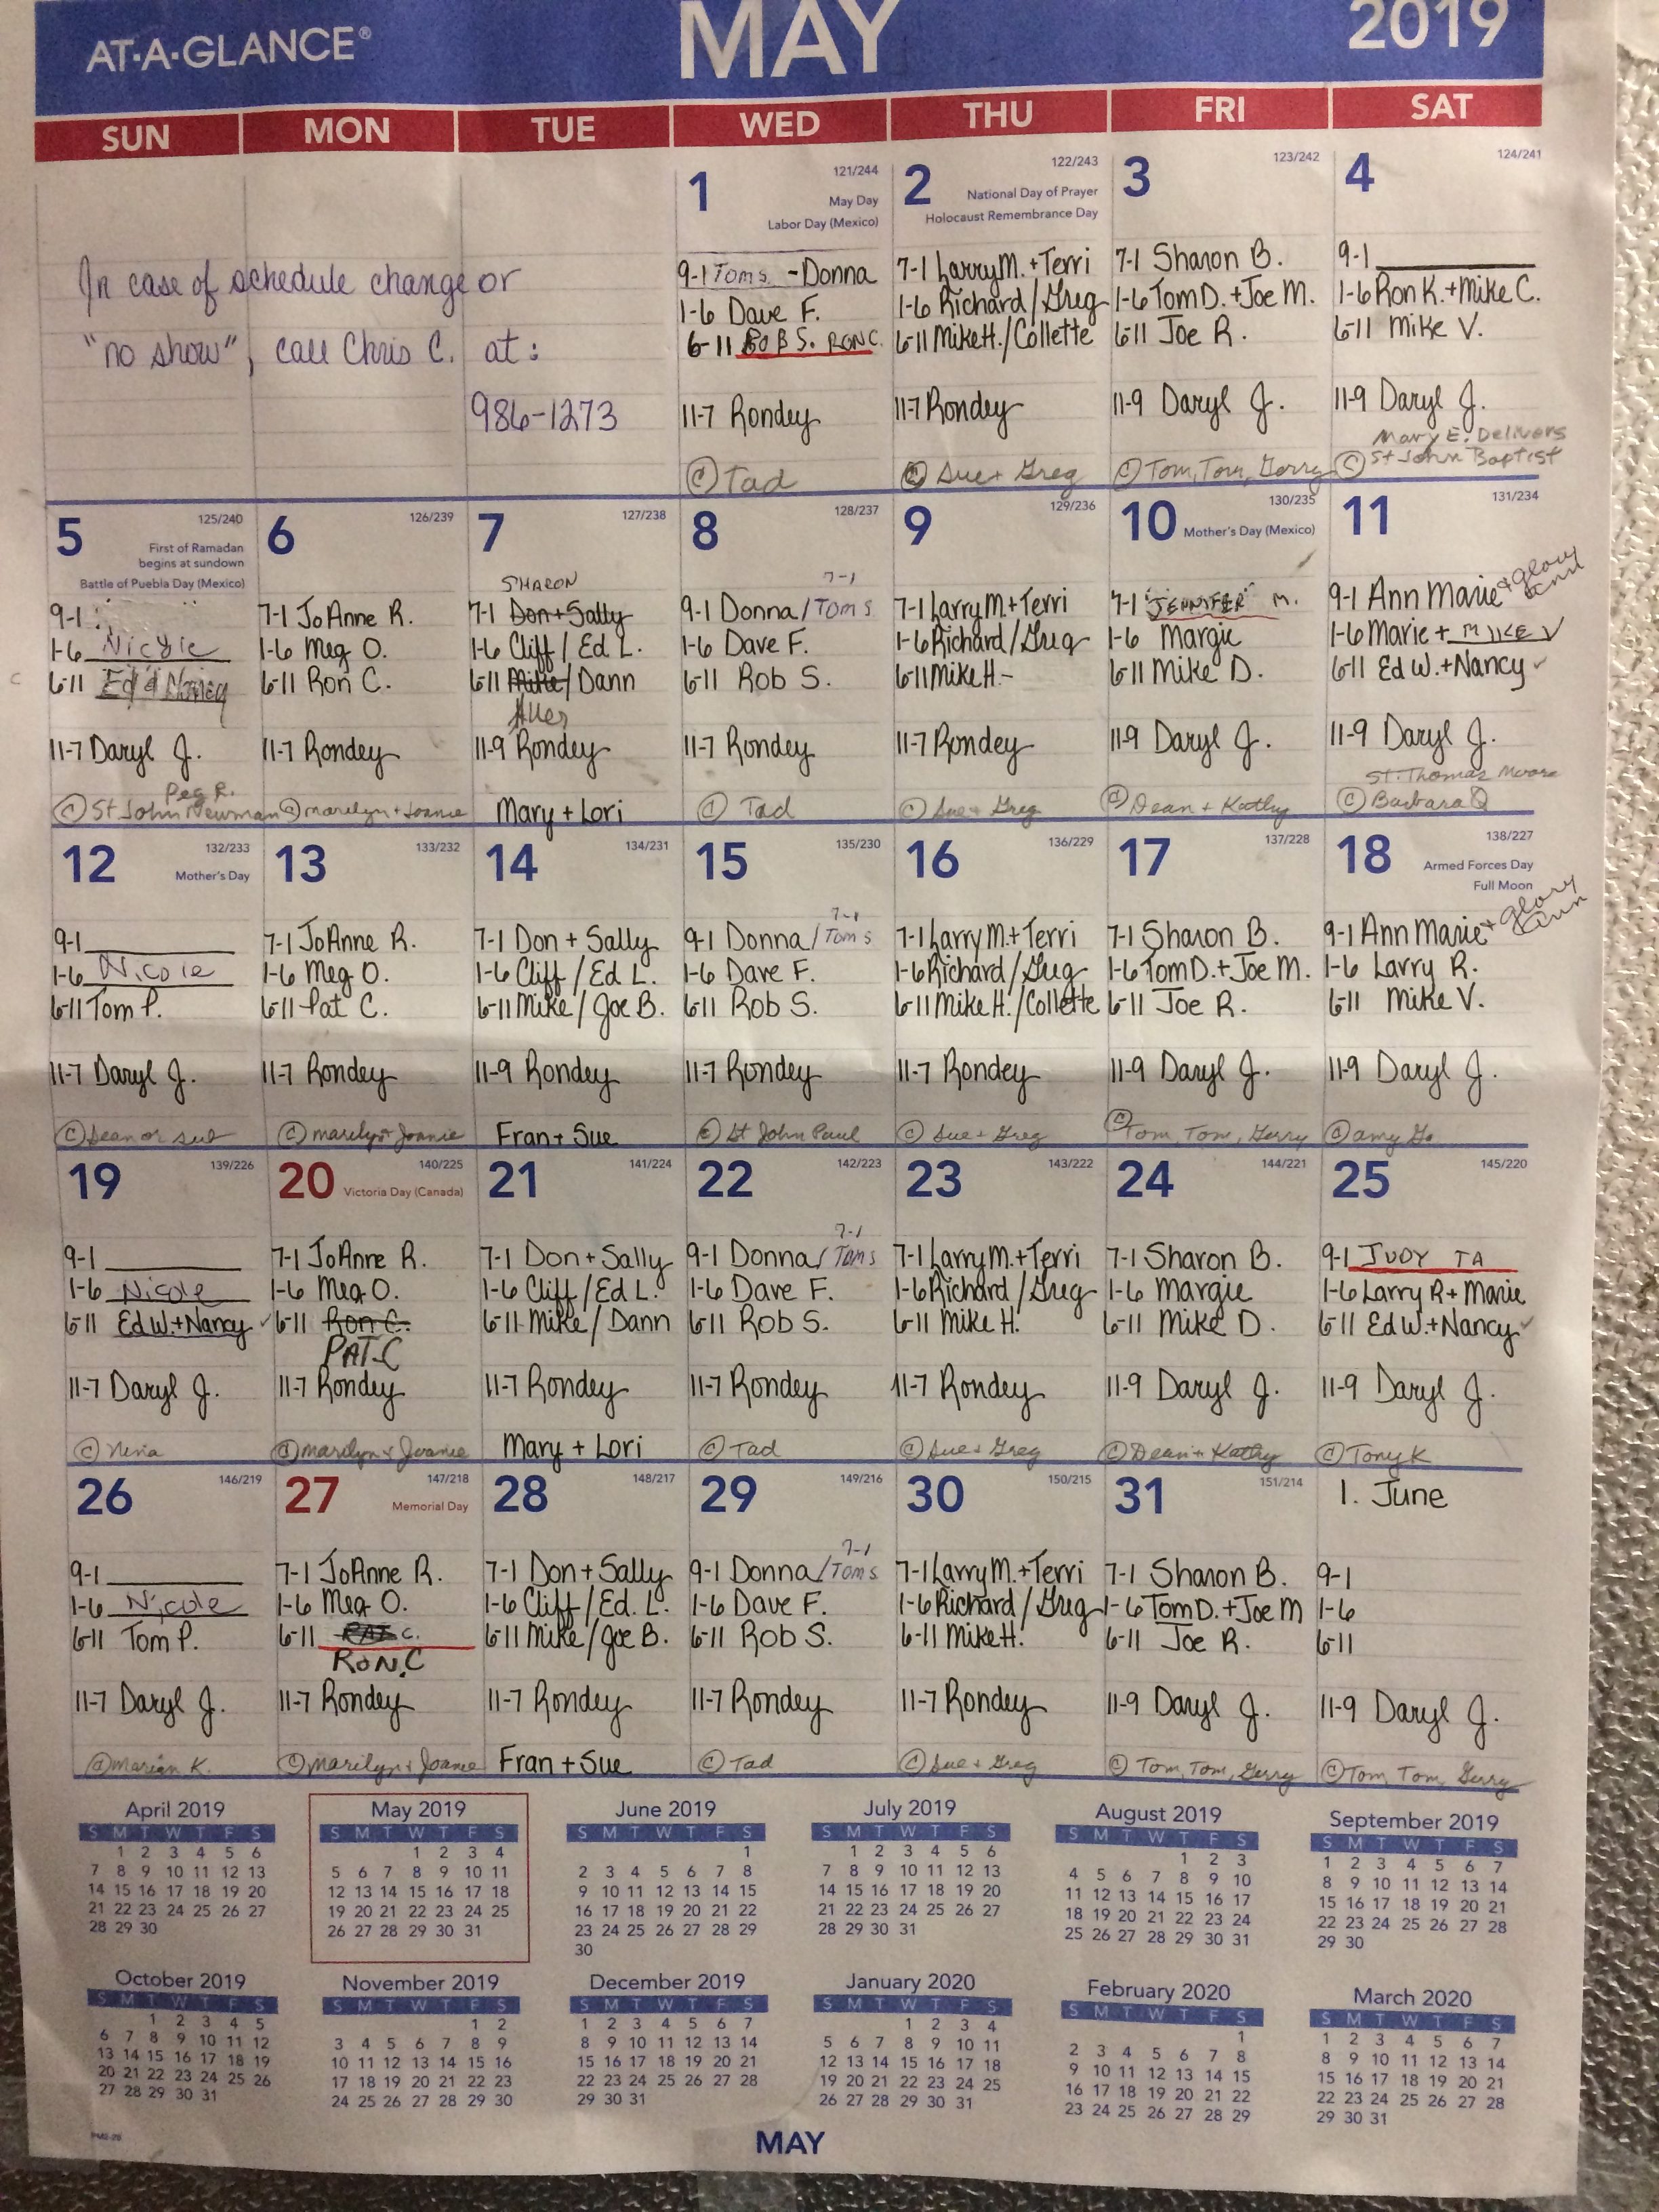 AT-A-GLANCE® MAY 2019
SUN MON TUE WED THU FRI SAT
In case of schedule change or
"no show", call Chris C. at:
986-1273
1 121/244
May Day
Labor Day (Mexico)
9-1 Tom S. - Donna
1-6 Dave F.
6-11 BOB S. RON C.
11-7 Rondey
© Tad
2 122/243
National Day of Prayer
Holocaust Remembrance Day
7-1 Larry M. + Terri
1-6 Richard / Greg
6-11 Mike H. / Collette
11-7 Rondey
© Sue + Greg
3 123/242
7-1 Sharon B.
1-6 Tom D. + Joe M.
6-11 Joe R.
11-9 Daryl J.
© Tom, Tom, Gerry
4 124/241
9-1
1-6 Ron K. + Mike C.
6-11 Mike V.
11-9 Daryl J.
Mary E. Delivers
© St John Baptist
5 125/240
First of Ramadan
begins at sundown
Battle of Puebla Day (Mexico)
9-1
1-6 Nicole
6-11 Ed & Nancy
11-7 Daryl J.
Peg R.
© St John Newman
6 126/239
7-1 JoAnne R.
1-6 Meg O.
6-11 Ron C.
11-7 Rondey
© Marilyn + Joanie
7 127/238
SHARON
7-1 Don + Sally
1-6 Cliff / Ed L.
6-11 Mike / Dann
11-9 Rondey
Mary + Lori
8 128/237
7-1
9-1 Donna / Tom S
1-6 Dave F.
6-11 Rob S.
11-7 Rondey
© Tad
9 129/236
7-1 Larry M. + Terri
1-6 Richard / Greg
6-11 Mike H. -
11-7 Rondey
© Sue + Greg
10 130/235
Mother's Day (Mexico)
7-1 JENNIFER M.
1-6 Margie
6-11 Mike D.
11-9 Daryl J.
© Dean + Kathy
11 131/234
9-1 Ann Marie +
1-6 Marie + MIKE V
6-11 Ed W. + Nancy ✓
11-9 Daryl J.
St. Thomas Moore
© Barbara Q
12 132/233
Mother's Day
9-1
1-6 Nicole
6-11 Tom P.
11-7 Daryl J.
© Dean or sub
13 133/232
7-1 JoAnne R.
1-6 Meg O.
6-11 Pat C.
11-7 Rondey
© Marilyn + Joanie
14 134/231
7-1 Don + Sally
1-6 Cliff / Ed L.
6-11 Mike / Joe B.
11-9 Rondey
Fran + Sue
15 135/230
7-1
9-1 Donna / Tom S
1-6 Dave F.
6-11 Rob S.
11-7 Rondey
© St John Paul
16 136/229
7-1 Larry M. + Terri
1-6 Richard / Greg
6-11 Mike H. / Collette
11-7 Rondey
© Sue + Greg
17 137/228
7-1 Sharon B.
1-6 Tom D. + Joe M.
6-11 Joe R.
11-9 Daryl J.
© Tom, Tom, Gerry
18 138/227
Armed Forces Day
Full Moon
9-1 Ann Marie +
1-6 Larry R.
6-11 Mike V.
11-9 Daryl J.
© Amy
19 139/226
9-1
1-6 Nicole
6-11 Ed W. + Nancy ✓
11-7 Daryl J.
©
20 140/225
Victoria Day (Canada)
7-1 JoAnne R.
1-6 Meg O.
6-11 Ron C.
PAT C
11-7 Rondey
© Marilyn + Joanie
21 141/224
7-1 Don + Sally
1-6 Cliff / Ed L.
6-11 Mike / Dann
11-7 Rondey
Mary + Lori
22 142/223
7-1
9-1 Donna / Tom S
1-6 Dave F.
6-11 Rob S.
11-7 Rondey
© Tad
23 143/222
7-1 Larry M. + Terri
1-6 Richard / Greg
6-11 Mike H.
11-7 Rondey
© Sue + Greg
24 144/221
7-1 Sharon B.
1-6 Margie
6-11 Mike D.
11-9 Daryl J.
© Dean + Kathy
25 145/220
9-1 JUDY TA
1-6 Larry R + Marie
6-11 Ed W. + Nancy ✓
11-9 Daryl J.
© Tony K
26 146/219
9-1
1-6 Nicole
6-11 Tom P.
11-7 Daryl J.
© Marian K.
27 147/218
Memorial Day
7-1 JoAnne R.
1-6 Meg O.
6-11 PAT C.
RON C
11-7 Rondey
© Marilyn + Joanie
28 148/217
7-1 Don + Sally
1-6 Cliff / Ed. L.
6-11 Mike / Joe B.
11-7 Rondey
Fran + Sue
29 149/216
7-1
9-1 Donna / Tom S
1-6 Dave F.
6-11 Rob S.
11-7 Rondey
© Tad
30 150/215
7-1 Larry M. + Terri
1-6 Richard / Greg
6-11 Mike H.
11-7 Rondey
© Sue + Greg
31 151/214
7-1 Sharon B.
1-6 Tom D. + Joe M
6-11 Joe R.
11-9 Daryl J.
© Tom, Tom, Gerry
1. June
9-1
1-6
6-11
11-9 Daryl J.
© Tom, Tom, Gerry
April 2019
S M T W T F S
1 2 3 4 5 6
7 8 9 10 11 12 13
14 15 16 17 18 19 20
21 22 23 24 25 26 27
28 29 30
May 2019
S M T W T F S
1 2 3 4
5 6 7 8 9 10 11
12 13 14 15 16 17 18
19 20 21 22 23 24 25
26 27 28 29 30 31
June 2019
S M T W T F S
1
2 3 4 5 6 7 8
9 10 11 12 13 14 15
16 17 18 19 20 21 22
23 24 25 26 27 28 29
30
July 2019
S M T W T F S
1 2 3 4 5 6
7 8 9 10 11 12 13
14 15 16 17 18 19 20
21 22 23 24 25 26 27
28 29 30 31
August 2019
S M T W T F S
1 2 3
4 5 6 7 8 9 10
11 12 13 14 15 16 17
18 19 20 21 22 23 24
25 26 27 28 29 30 31
September 2019
S M T W T F S
1 2 3 4 5 6 7
8 9 10 11 12 13 14
15 16 17 18 19 20 21
22 23 24 25 26 27 28
29 30
October 2019
S M T W T F S
1 2 3 4 5
6 7 8 9 10 11 12
13 14 15 16 17 18 19
20 21 22 23 24 25 26
27 28 29 30 31
November 2019
S M T W T F S
1 2
3 4 5 6 7 8 9
10 11 12 13 14 15 16
17 18 19 20 21 22 23
24 25 26 27 28 29 30
December 2019
S M T W T F S
1 2 3 4 5 6 7
8 9 10 11 12 13 14
15 16 17 18 19 20 21
22 23 24 25 26 27 28
29 30 31
January 2020
S M T W T F S
1 2 3 4
5 6 7 8 9 10 11
12 13 14 15 16 17 18
19 20 21 22 23 24 25
26 27 28 29 30 31
February 2020
S M T W T F S
1
2 3 4 5 6 7 8
9 10 11 12 13 14 15
16 17 18 19 20 21 22
23 24 25 26 27 28 29
March 2020
S M T W T F S
1 2 3 4 5 6 7
8 9 10 11 12 13 14
15 16 17 18 19 20 21
22 23 24 25 26 27 28
29 30 31
MAY